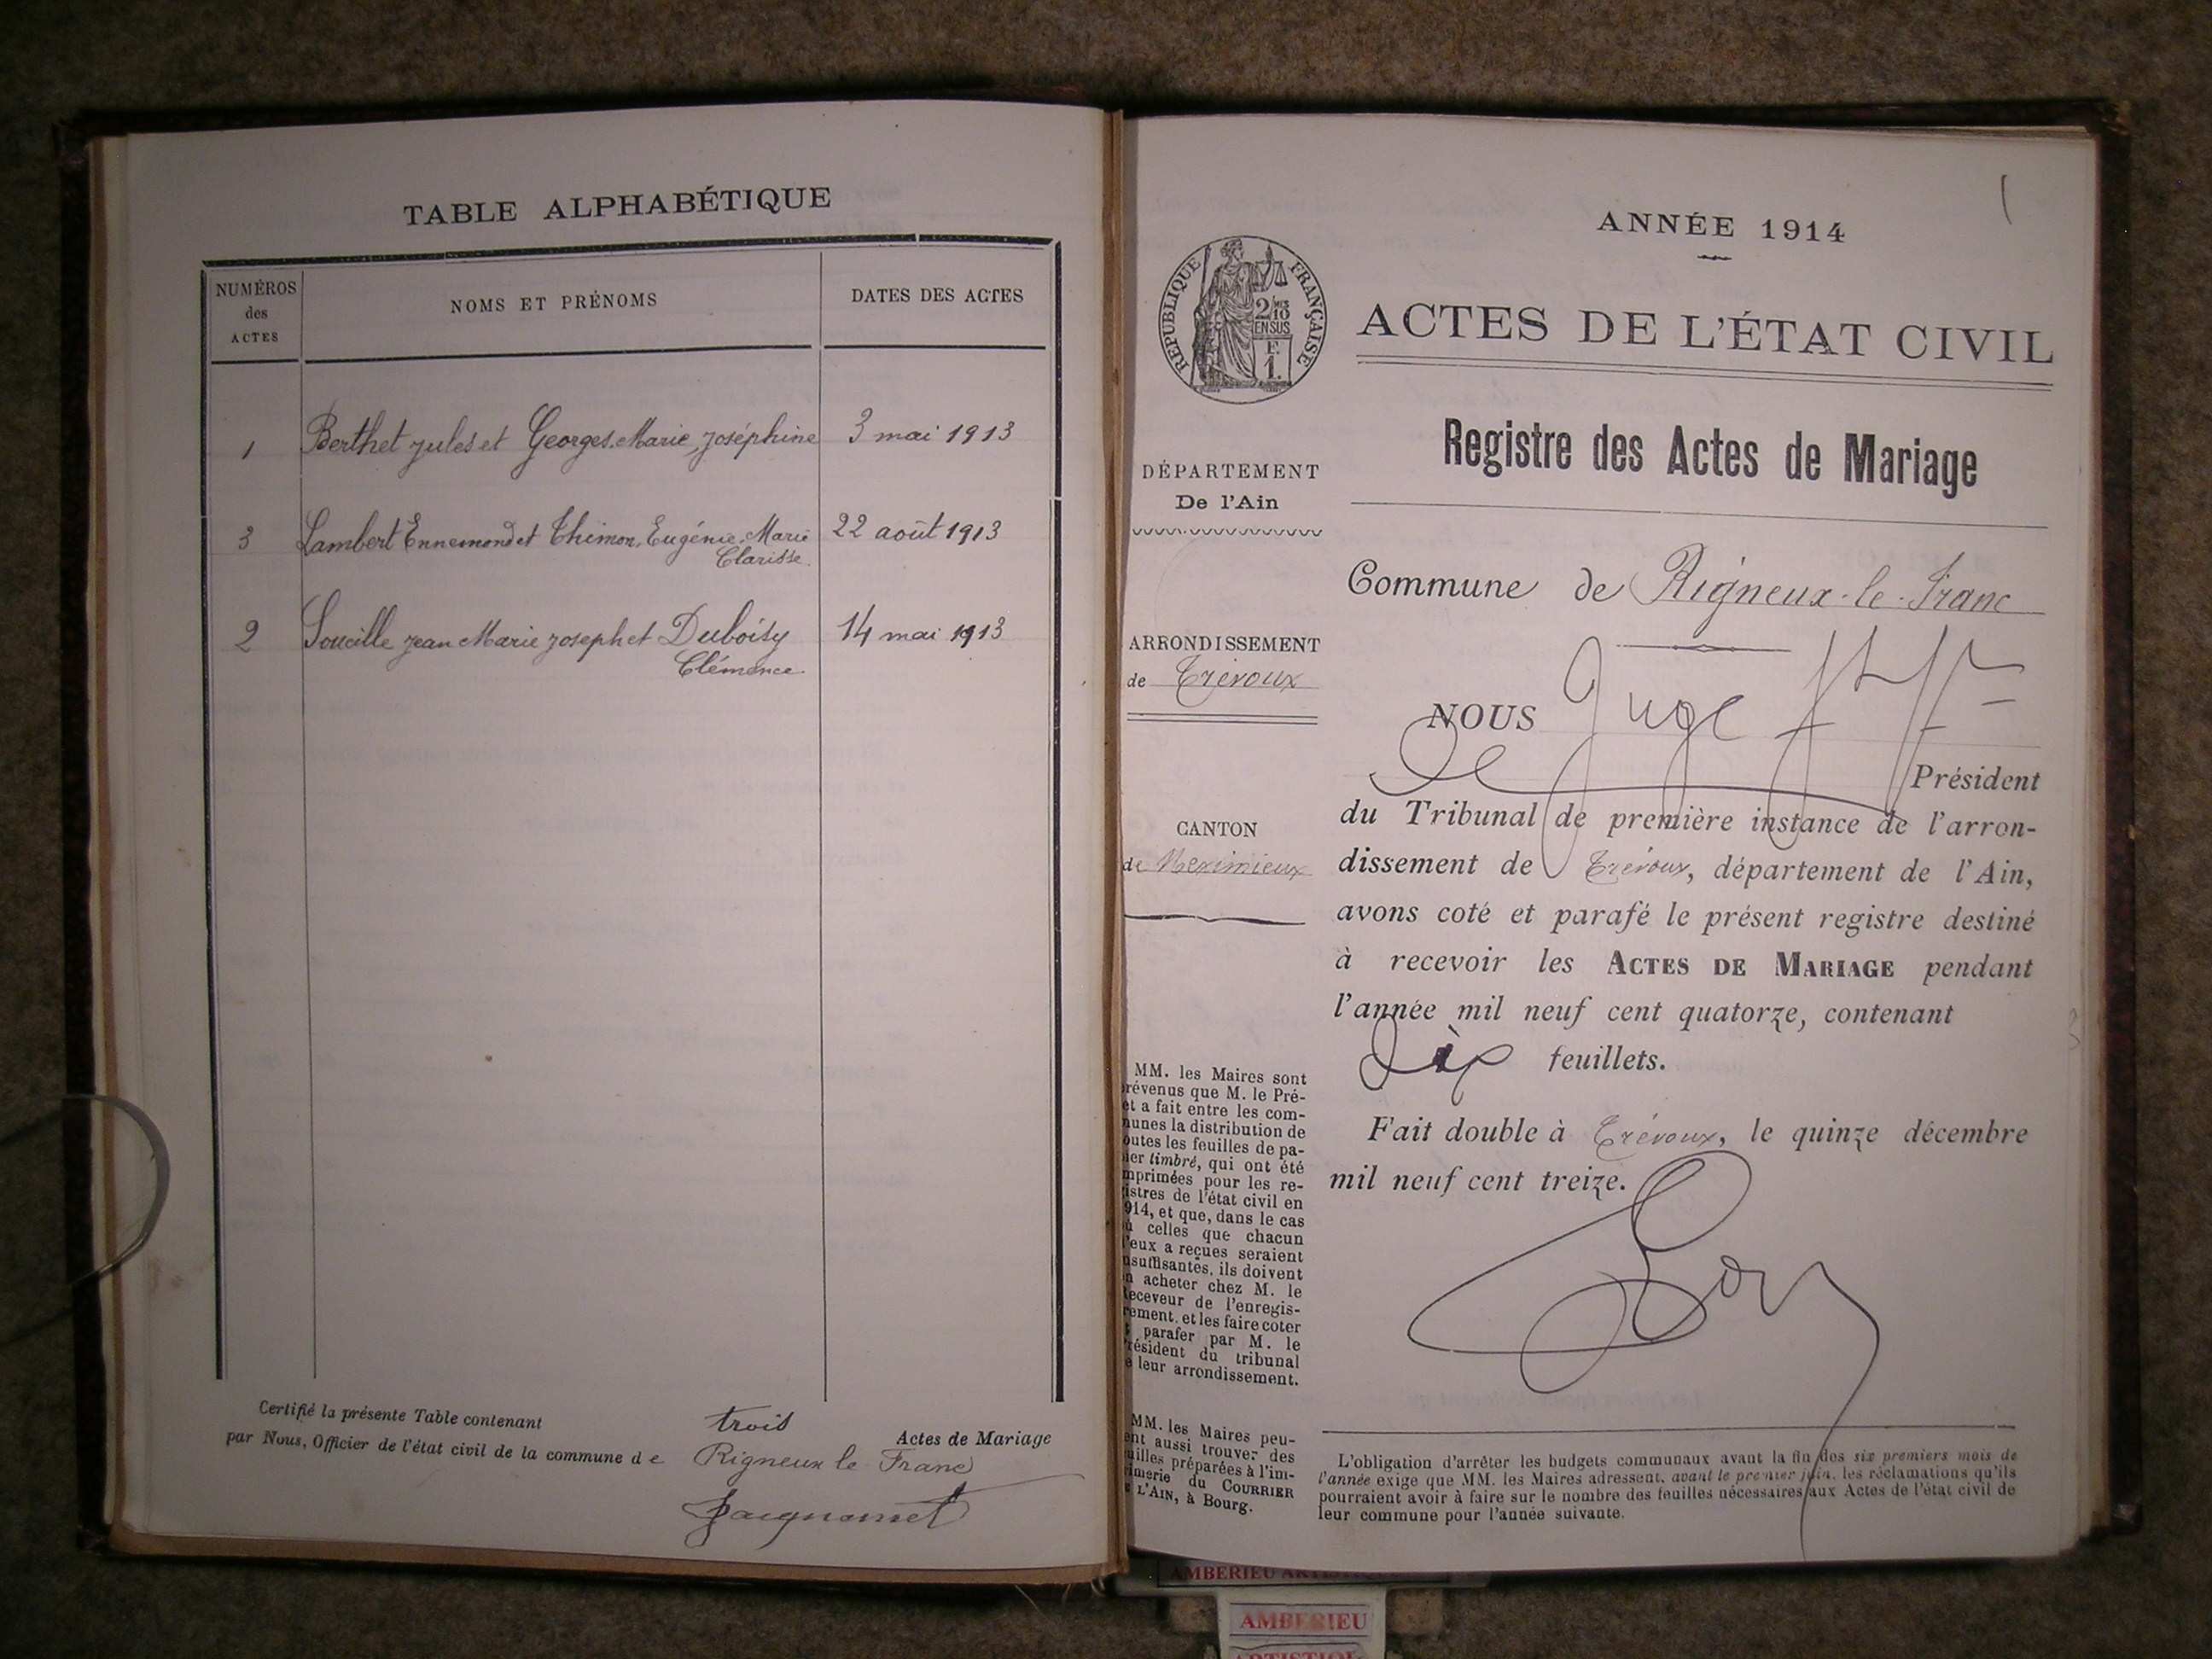 TABLE ALPHABÉTIQUE
NUMÉROS
des
ACTES
NOMS ET PRÉNOMS
DATES DES ACTES
1 Berthet Jules et Georges, Marie, Joséphine 3 mai 1913
3 Lambert Ennemond et Thimon, Eugénie, Marie 22 août 1913
Clarisse.
2 Soucille Jean Marie Joseph et Duboisy 14 mai 1913
Clémence.
Certifié la présente Table contenant trois Actes de Mariage
par Nous, Officier de l'état civil de la commune de Rigneux le Franc
ANNÉE 1914
RÉPUBLIQUE FRANÇAISE
2/10 MES
EN SUS
F.
1.
ACTES DE L'ÉTAT CIVIL
Registre des Actes de Mariage
DÉPARTEMENT
De l'Ain
Commune de Rigneux-le-Franc
ARRONDISSEMENT
de Trévoux
CANTON
de Meximieux
NOUS Juge
Président
du Tribunal de première instance de l'arron-
dissement de Trévoux, département de l'Ain,
avons coté et parafé le présent registre destiné
à recevoir les ACTES DE MARIAGE pendant
l'année mil neuf cent quatorze, contenant
Dix feuillets.
Fait double à Trévoux, le quinze décembre
mil neuf cent treize.
MM. les Maires sont
révenus que M. le Pré-
et a fait entre les com-
unes la distribution de
outes les feuilles de pa-
ier timbré, qui ont été
mprimées pour les re-
istres de l'état civil en
914, et que, dans le cas
ù celles que chacun
'eux a reçues seraient
nsuffisantes, ils doivent
n acheter chez M. le
eceveur de l'enregis-
rement, et les faire coter
t parafer par M. le
résident du tribunal
e leur arrondissement.
MM. les Maires peu-
ent aussi trouver des
uilles préparées à l'im-
imerie du COURRIER
L'AIN, à Bourg.
L'obligation d'arrêter les budgets communaux avant la fin des six premiers mois de
l'année exige que MM. les Maires adressent, avant le premier juin, les réclamations qu'ils
pourraient avoir à faire sur le nombre des feuilles nécessaires aux Actes de l'état civil de
leur commune pour l'année suivante.
AMBERIEU
AMBERIEU